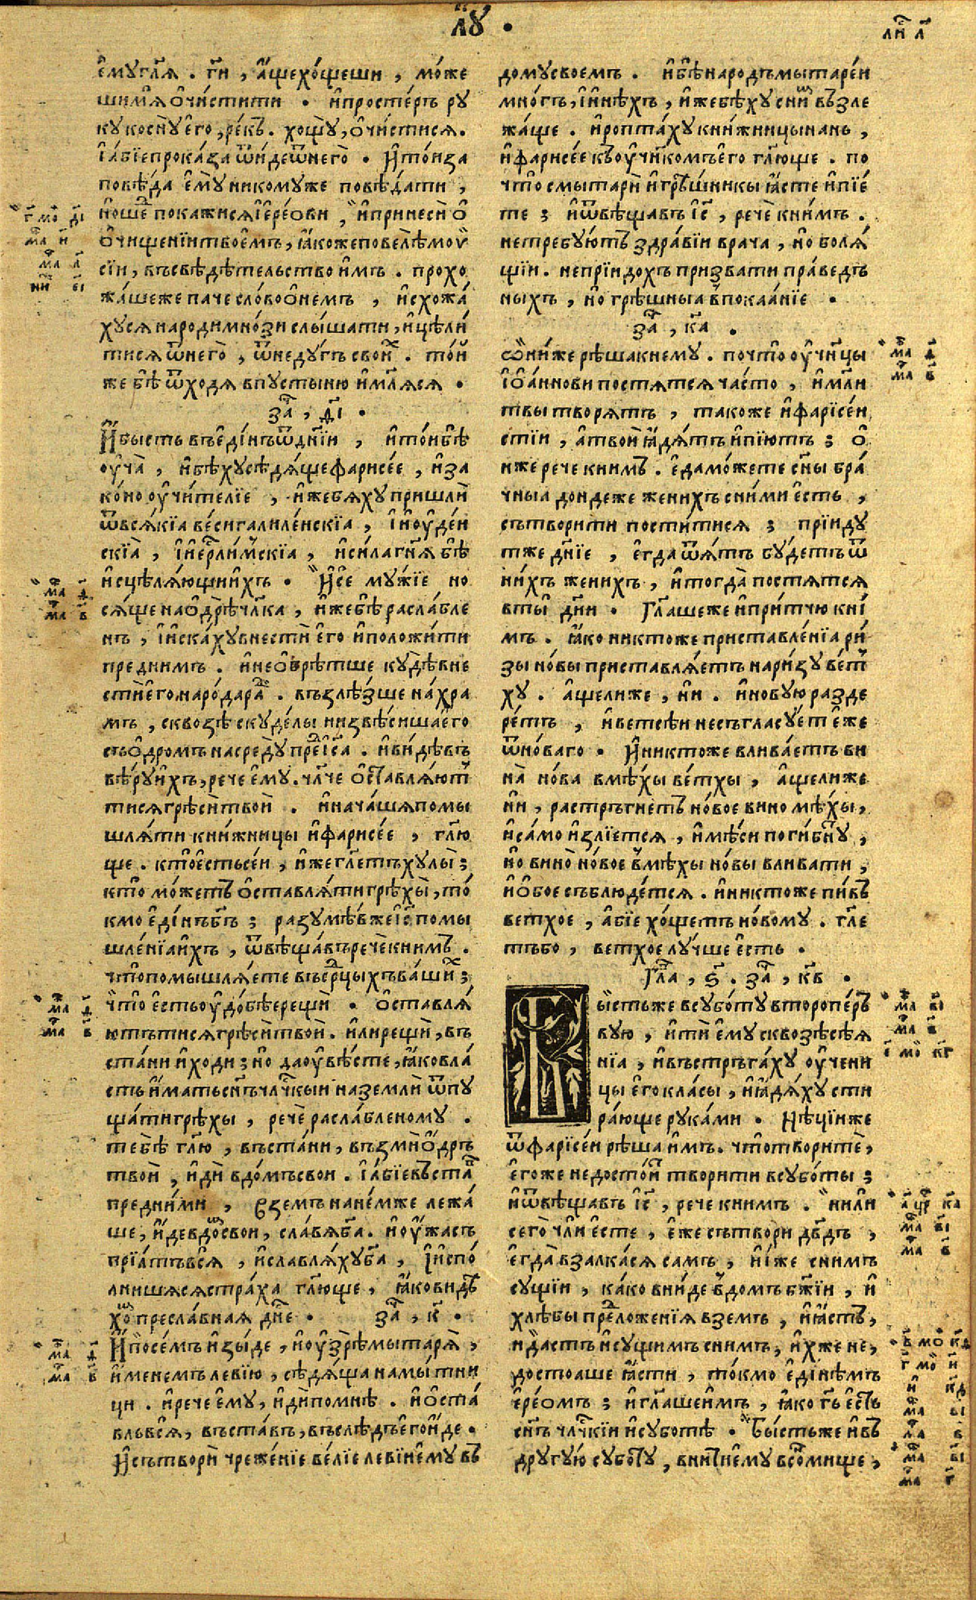 лꙋ .
емꙋглѧ . ги , ащехощеши , може
шимѧ очистити . ипростеръ рꙋ
кꙋ коснꙋ его , рекъ . хощꙋ , очистисѧ .
їабїепроказа ѿидеѿнего . итоиза
повѣда емꙋ никомꙋже повѣдати ,
ношⷣе покажисѧ їереови , ипринеси о
очищенїитвоемъ , ꙗкожеповелѣмоѵ
сїи , въсвѣдѣтельство имъ . прохо
жашеже паче словоонемъ , исхожа
хꙋсѧ народимнози слышати , ицѣли
тисѧ ѿнего , ѿнедꙋгъ своиⷯ . той
же бѣ ѿходѧ впꙋстыню имлѧсѧ .
за҃ , д҃і .
Ибысть въединъѿднїи , итоибѣ
оучѧ , ибѣхꙋсѣдѧщефарисее , иза
коно оучителїе , ижебѧхꙋ пришли
ѿвсѧкїа весигалилеискїа , їиоудеи
скїа , їиерлимскїа , исилагнѧ бѣ
исцелѧющиихъ . Исе мꙋжїе но
сѧще наодрѣчлка , ижебѣ раслабле
нъ , їискахꙋвнести его иположити
преднимъ . инеобрѣтше кꙋдѣвне
стиегонародараⷣ . възлѣзше нахра
мъ , сквозѣ скꙋделы низвѣсишаего
съодромъ насредꙋ преⷣїса . ивидѣвъ
вѣрꙋихъ , рече емꙋ . члче оставлѧют
тисѧгрѣситвои . иначашѧпомы
шлѧти книжницы ифарисее , глю
ще . ктоестьсеи , ижеглетъхꙋлы ;
кто можетъ оставлѧтигрѣхы , то
кмо единъбгъ ; разꙋмѣвжеїс помы
шленїаихъ , ѿвѣщавъречекнимъ .
чтопомышлѧете въсрцыхъвашиⷯ ;
что естьоудобѣерещи . оставлѧ
ютътисѧгрѣситвои . илирещи , въ
стани иходи ; но даоувѣсте , ꙗковла
сть иматьснъчлчкыи наземли ѿпꙋ
щатигрѣхы , рече раслабленомꙋ .
тебѣ глю , въстани , възмиодръ
твои , иди вдомъсвои . їабїевъстаⷡ
предними , вземъ нанемже лежа
ше , идевдоⷨсвои , славѧбга . иоужасъ
прїатъвсѧ , иславлѧхꙋбга , їиспо
лнишасѧстраха глюще , ꙗковидѣ
хоⷨ преславнаѧ дне . за҃ , к҃ .
Ипосемъ изыде , иоузрѣмытарѧ ,
именемъ левїю , сѣдѧща намытни
ци . ирече емꙋ , идипомнѣ . иоста
вльвсѧ , въставъ , въслѣдъегоиде .
Исътвори чреженїе велїе левїиемꙋ въ
домꙋсвоемъ . ибѣнародъмытареи
многъ , їинѣхъ , ижебѣхꙋ сниⷨ възле
жаще . ироптахꙋ книжницынань ,
ифарисее къоучнкомъего глюще . по
что смытари игрѣшникы ꙗсте ипїе
те ; иѿвѣщавъ їс , рече книмъ .
нетребꙋютъ здравїи врача , но болѧ
щїи . непрїидохъ призвати праведъ
ныхъ , но грѣшныꙗ впокаанїе .
за҃ , к҃а .
ѡнижерѣшакнемꙋ . почтооучнцы
їоанновипостѧтсѧ часто , имли
твы творѧтъ , такоже ифарїсеи
стїи , атвои ꙗдѧтъ ипїютъ ; о
иже рече книмъ . едаможете сны бра
чныа дондеже женихъ сними есть ,
сътворити поститисѧ ; прїидꙋ
тже днїе , егда ѿѧтъ бꙋдетъ ѿ
нихъ женихъ , итогда постѧтсѧ
вты дни . Глашеже ипритчю кни
мъ . ꙗко никтоже приставленїа ри
зы новы приставлѧетъ наризꙋ вет
хꙋ . ащелиже , ни . иновꙋю разде
ретъ , иветсѣи несъгласꙋет еже
ѿноваго . Иниктоже вливаетъ ви
на нова вмѣхы ветхы , ащелиже
ни , растръгнетъ новое вино мѣхы ,
исамо излїетсѧ , имѣси погибнꙋ ,
но вино новое вмѣхы новы вливати ,
иобое съблюдетсѧ . иниктоже пивъ
ветхое , абїе хощетъ новомꙋ . гле
тъбо , ветхое лꙋчше есть .
Гла , ѕ҃ . за҃ , к҃в .
Бысть же всꙋботꙋ второперъ
вꙋю , ити емꙋ сквозѣсѣѧ
нїа , ивъстръгахꙋ оучени
цы его класы , иꙗдѧхꙋ сти
рающе рꙋками . Нѣцїиже
ѿфарїсеи рѣша имъ . чтотворите ,
егоже недостои творити всꙋботы ;
иѿвѣщавъ їс , рече книмъ . нили
сего чли есте , еже сътвори двдъ ,
егда взалкасѧ самъ , ииже снимъ
сꙋщїи , како вниде вдомъ бжїи , и
хлѣбы преⷣложенїа вземъ , иꙗстъ ,
идастъ исꙋщимъ снимъ , ихже не ,
достоаше ꙗсти , токмо единѣмъ
їереомъ ; иглашеимъ , ꙗко гь есть
снъ члчкїи исꙋботѣ . Бысть же ивъ
дрꙋгꙋю сꙋботꙋ , внитиемꙋ всонмище ,